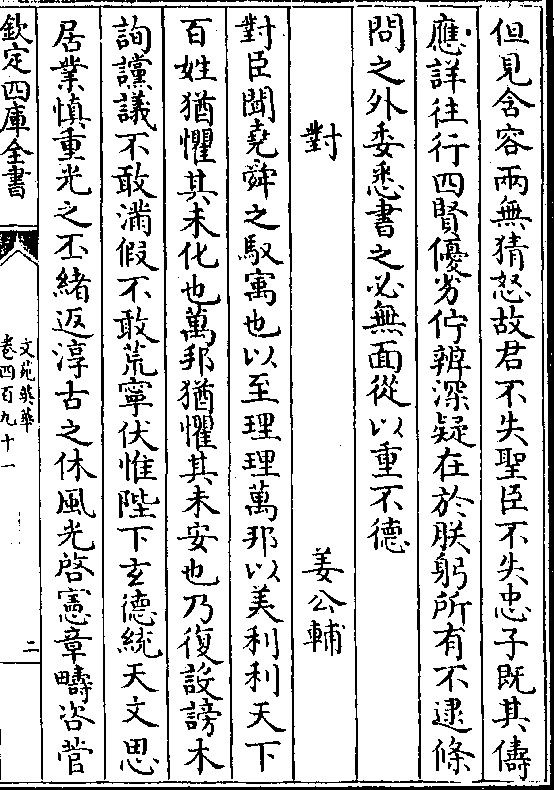 但見含容兩無猜怒故君不失聖臣不失忠子既其儔
應詳往行四賢優劣佇辨深疑在於朕躬所有不逮條
問之外委悉書之必無面從以重不德
對　姜公輔
對臣聞堯舜之馭寓也以至理理萬邦以美利利天下
百姓猶懼其未化也萬邦猶懼其未安也乃復設謗木
詢讜議不敢滿假不敢荒寧伏惟陛下玄德統天文思
居業慎重光之丕緒返淳古之休風光啓憲章疇咨菅
欽定四庫全書
文苑英華
卷四百九十一
二